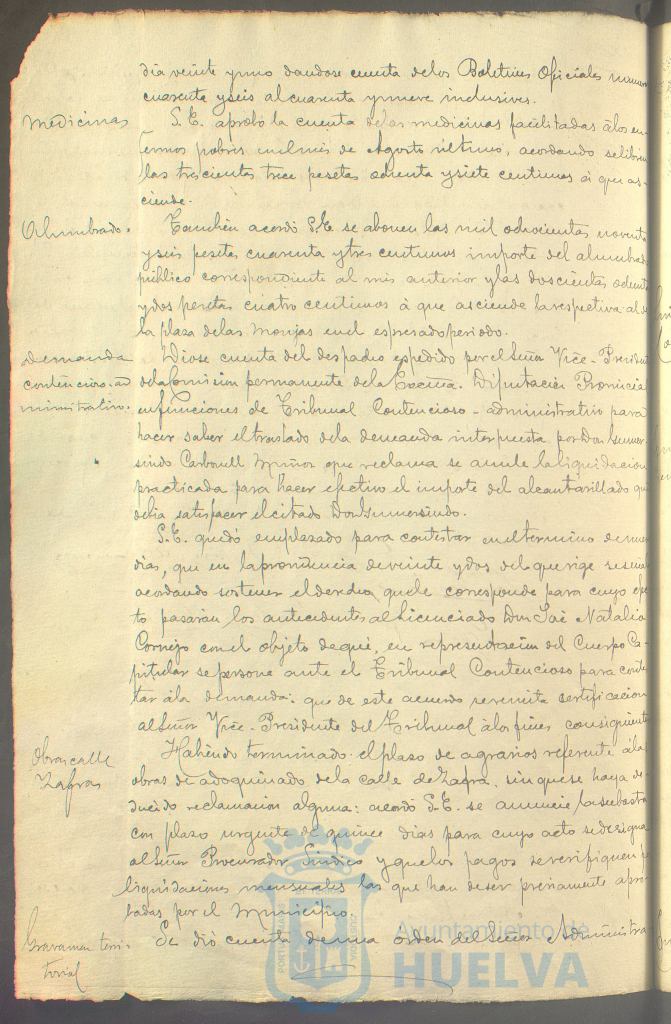 dia veinte y uno dandose cuenta de los Boletines Oficiales numeros
cuarenta y seis al cuarenta y nueve inclusives.
Medicinas
S.E. aprobó la cuenta de las medicinas facilitadas á los en-
fermos pobres en el mes de Agosto ultimo, acordando se libren
las trescientas trece pesetas ochenta y siete centimos á que as-
ciende.
Alumbrado.
Tambien acordó S.E. se abonen las mil ochocientas noventa
y seis pesetas cuarenta y tres centimos importe del alumbrado
público correspondiente al mes anterior y las doscientas ochenta
y dos pesetas cuatro centimos á que asciende la respectiva al de
la plaza de las Monjas en el espresado periodo.
Demanda
contencioso-ad
ministrativo.
Diose cuenta del despacho espedido por el Señor Vice-President
de la Comision permanente de la Excma. Diputacion Provincial
en funciones de Tribunal Contencioso-administrativo para
hacer saber el traslado de la demanda interpuesta por Don Gumer-
sindo Carbonell Muñoz que reclama se anule la liquidacion
practicada para hacer efectivo el importe del alcantarillado que
debia satisfacer el citado Don Gumersindo.
S.E. quedó emplazado para contestar en el termino de nueve
dias, que en la providencia de veinte y dos del que rige se señala
acordando sostener el derecho que le corresponde para cuyo efec
to pasarán los antecedentes al Licenciado Don José Natalio
Cornejo con el objeto de que, en representacion del Cuerpo Ca-
pitular se persone ante el Tribunal Contencioso para contes
tar á la demanda: que de este acuerdo se remita certificacion
al Señor Vice-Presidente del Tribunal á los fines consiguientes
Obras calle
Zafra
Habiendo terminado el plazo de agravios referente á las
obras de adoquinado de la calle de Zafra, sin que se haya de
ducido reclamacion alguna: acordó S.E. se anuncie la subasta
con plazo urgente de quince dias para cuyo acto se designa
al Señor Procurador Sindico y que los pagos se verifiquen p
liquidaciones mensuales las que han de ser previamente apro
badas por el Municipio.
Gravamen terri-
torial
Se dió cuenta de una orden del Señor Administra
Ayuntamiento de
HUELVA